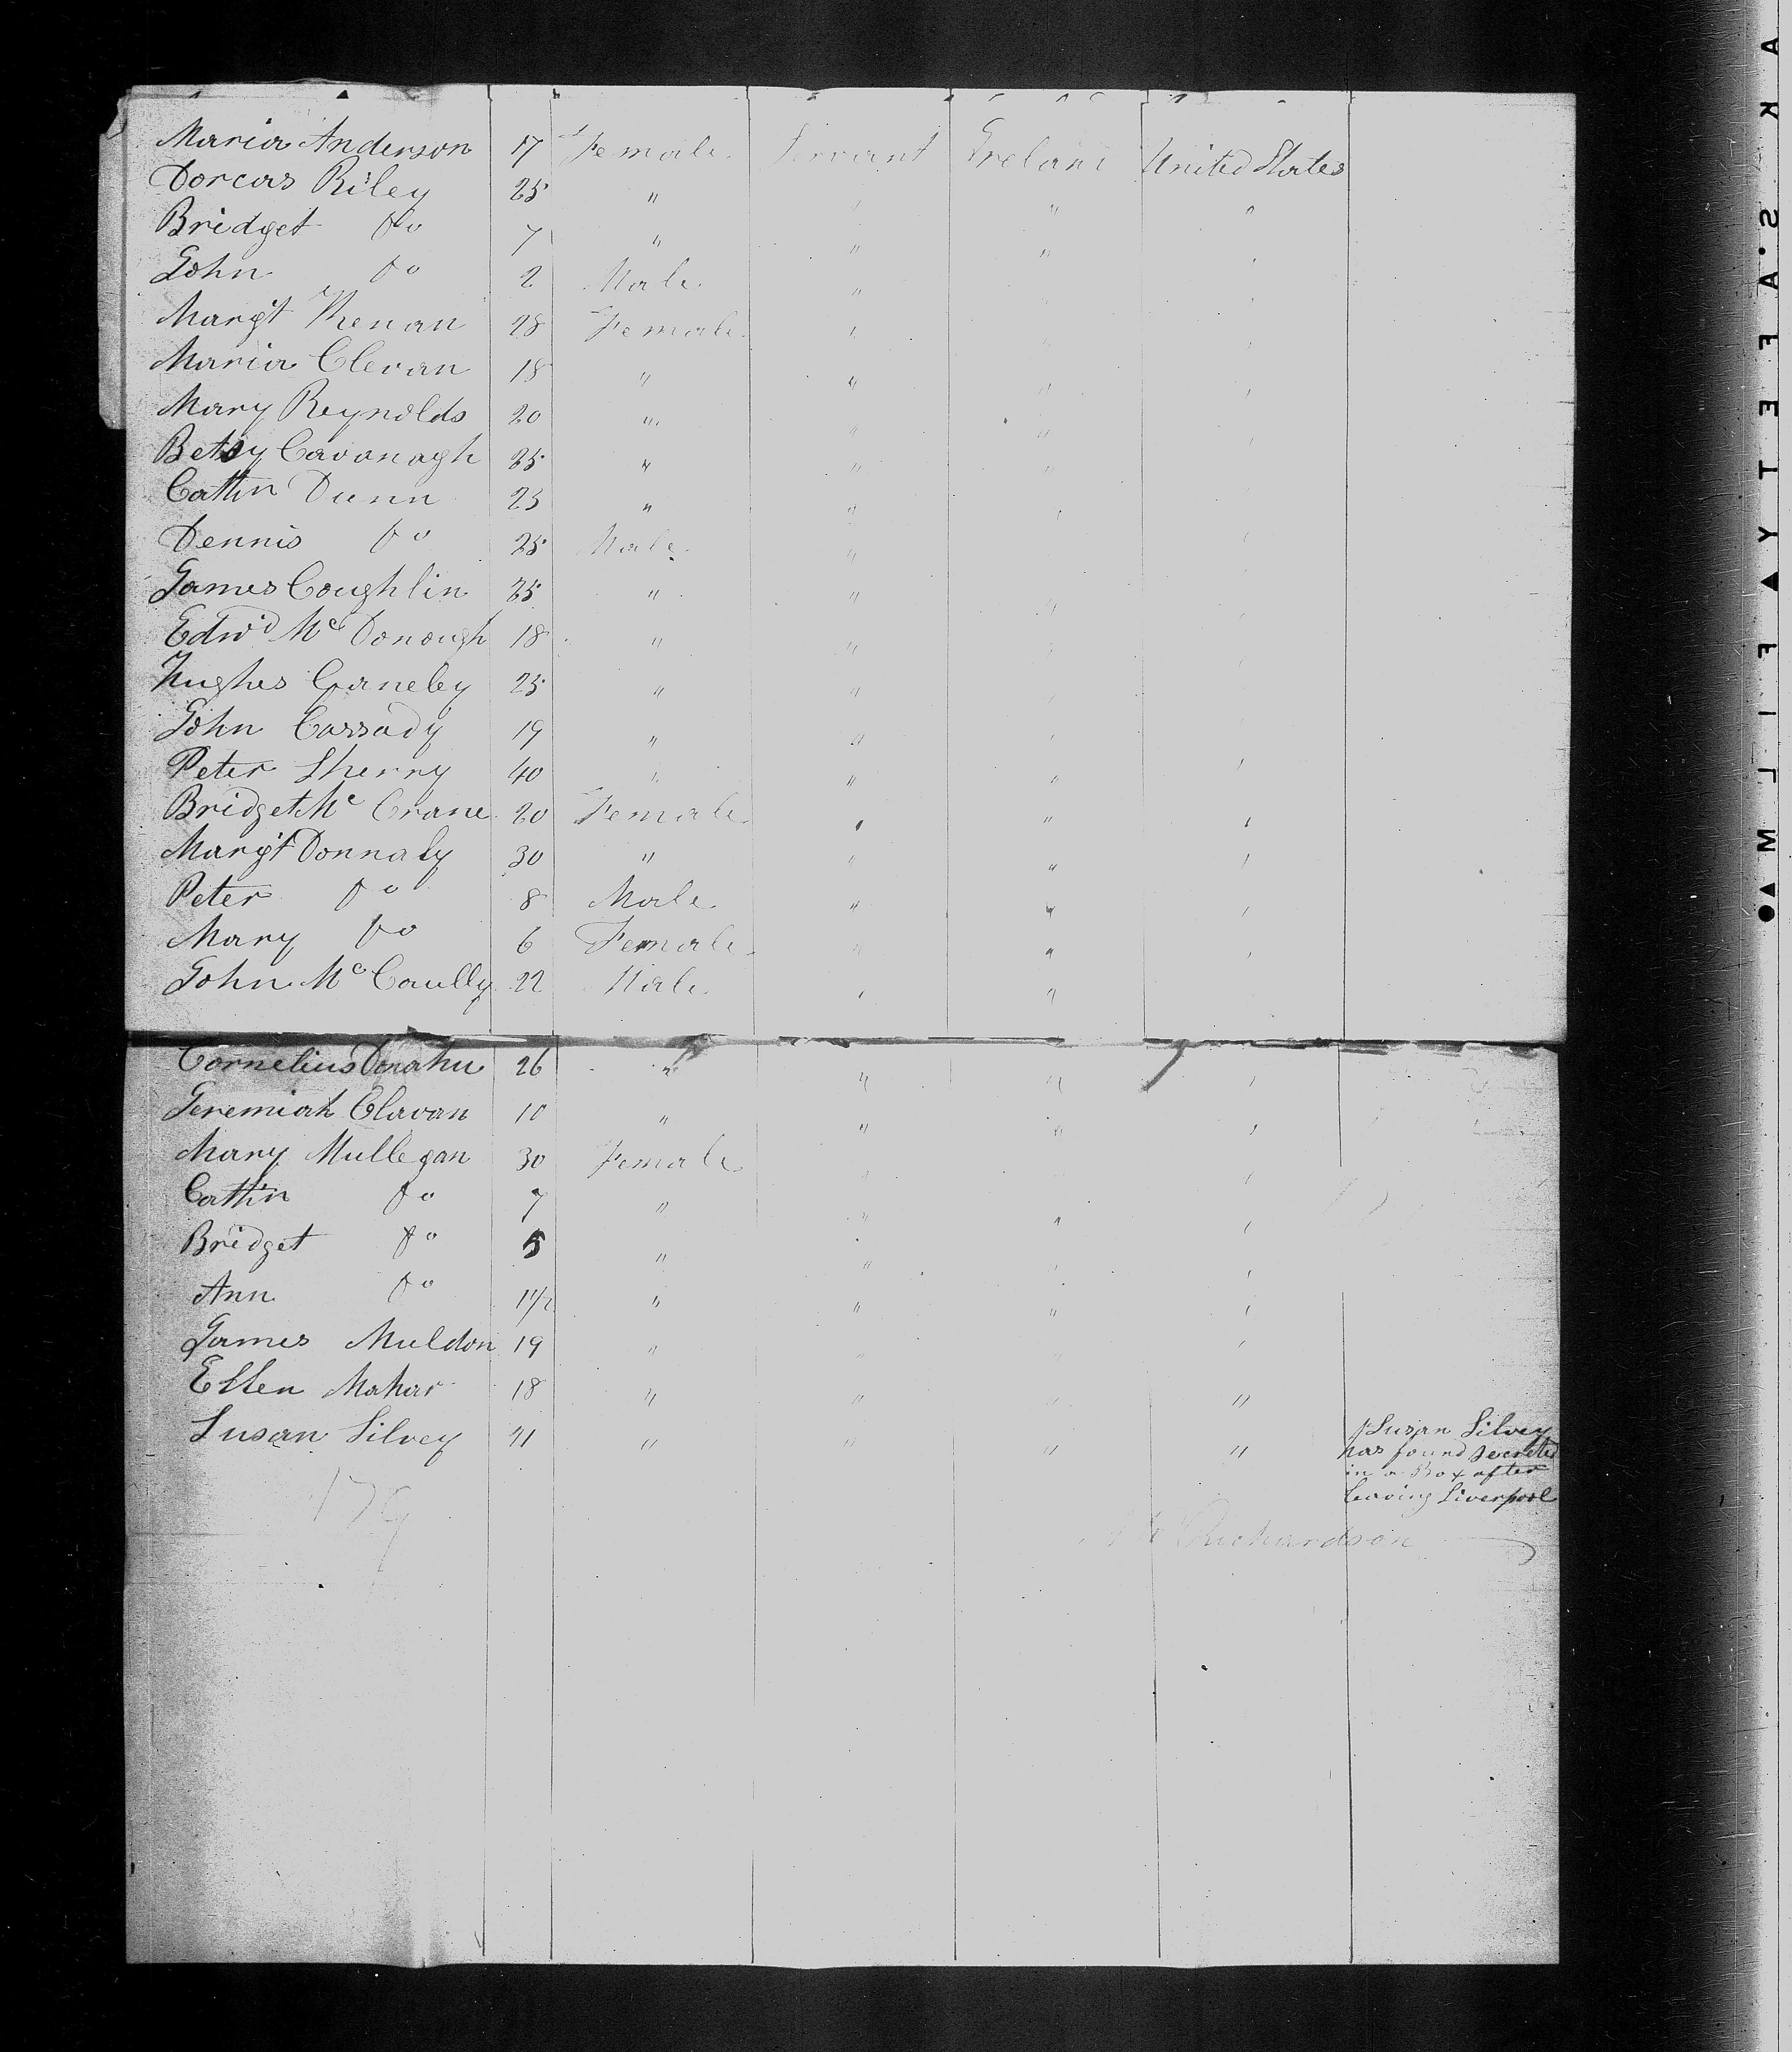 Maria Anderson 17 Female Servant Ireland United States
Dorcas Riley 25 " " " "
Bridget Do 7 " " " "
John Do 2 Male " "
Margt Kenan 28 Female " "
Maria Clevan 18 " " " "
Mary Reynolds 20 " " " "
Betsy Cavanagh 25 " " " "
Cathn Dunn 23 " " "
Dennis Do 25 Male " "
James Coughlin 25 " " "
Edwd Mc Donough 18 " " " "
Hughes Ganeley 25 " " " "
John Cassady 19 " " "
Peter Sherry 40 " " " "
Bridget Mc Crane 20 Female " " "
Margt Donnaly 30 " " " "
Peter Do 8 Male " " "
Mary Do 6 Female " " "
John Mc Caully 22 Male " "
Cornelius Donahu 26 " " " "
Jeremiah Clavan 10 " " " "
Mary Mullegan 30 Female " "
Cathn Do 7 " " " "
Bridget Do 5 " " " "
Ann Do 1 1/2 " " " "
James Muldon 19 " " " "
Ellen Mahar 18 " " " "
Susan Silvey 21 " " " "
Susan Silvey
was found secreted
in a Box after
leaving Liverpool
179
Richardson